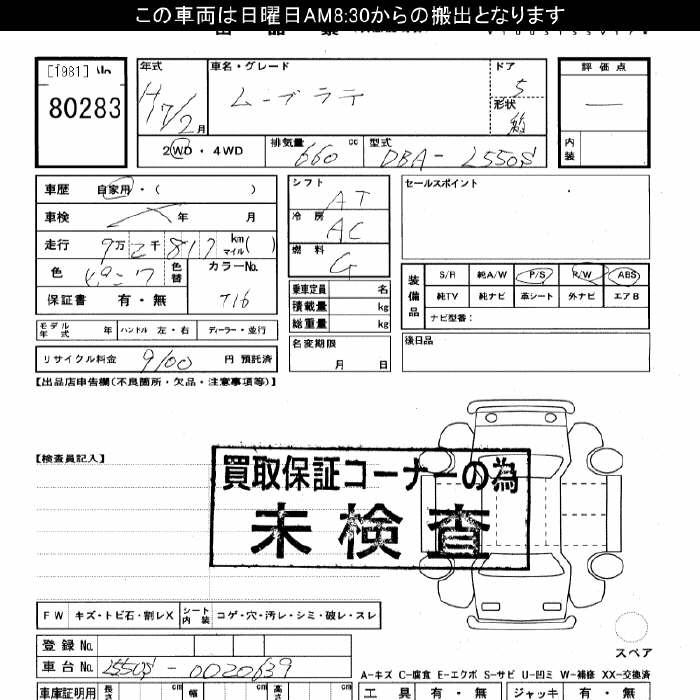 この車両は日曜日AM8:30からの搬出となります
[1981]
80283
年式 車名・グレード ドア 評価点
H17/2月 ムーブラテ 5
形状 箱
2WD・4WD 排気量 660 cc 型式 DBA-L550S 内装
車歴 自家用・( ) シフト AT セールスポイント
車検 年 月 冷房 AC
走行 9万2千817 km マイル( ) 燃料 G
色 ピンク 色替 カラーNo. T16
保証書 有・無
乗車定員 名
積載量 kg
総重量 kg
装備品 S/R 純A/W P/S R/W ABS
純TV 純ナビ 革シート 外ナビ エアB
ナビ型番:
モデル年式 年 ハンドル 左・右 ディーラー・並行
名変期限 月 日
後日品
リサイクル料金 9100 円 預託済
【出品店申告欄(不良箇所・欠品・注意事項等)】
【検査員記入】
買取保証コーナーの為
未検査
FW キズ・トビ石・割レX シート内装 コゲ・穴・汚レ・シミ・破レ・スレ
スペア
登録No.
車台No. L550S-0020639
A-キズ C-腐食 E-エクボ S-サビ U-凹ミ W-補修 XX-交換済
車庫証明用 長さ cm 幅 cm 高さ cm 工具 有・無 ジャッキ 有・無